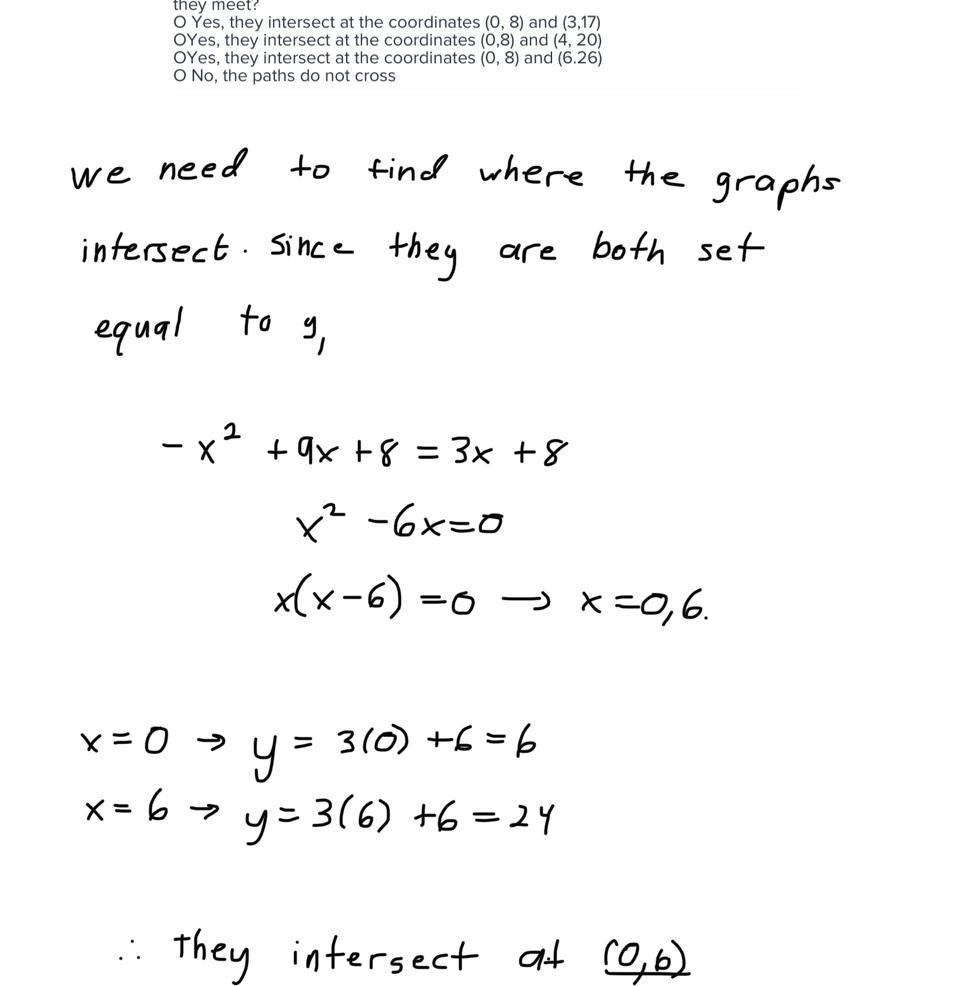 they meet?
O Yes, they intersect at the coordinates (0, 8) and (3,17)
OYes, they intersect at the coordinates (0,8) and (4, 20)
OYes, they intersect at the coordinates (0, 8) and (6.26)
O No, the paths do not cross
we need to find where the graphs
intersect. Since they are both set
equal to y,
-x² +9x+8 = 3x +8
x² -6x=0
x(x-6) =0 → x=0,6.
x=0 → y = 3(0) +6 = 6
x=6 → y=3(6) +6 = 24
∴ they intersect at (0,6)